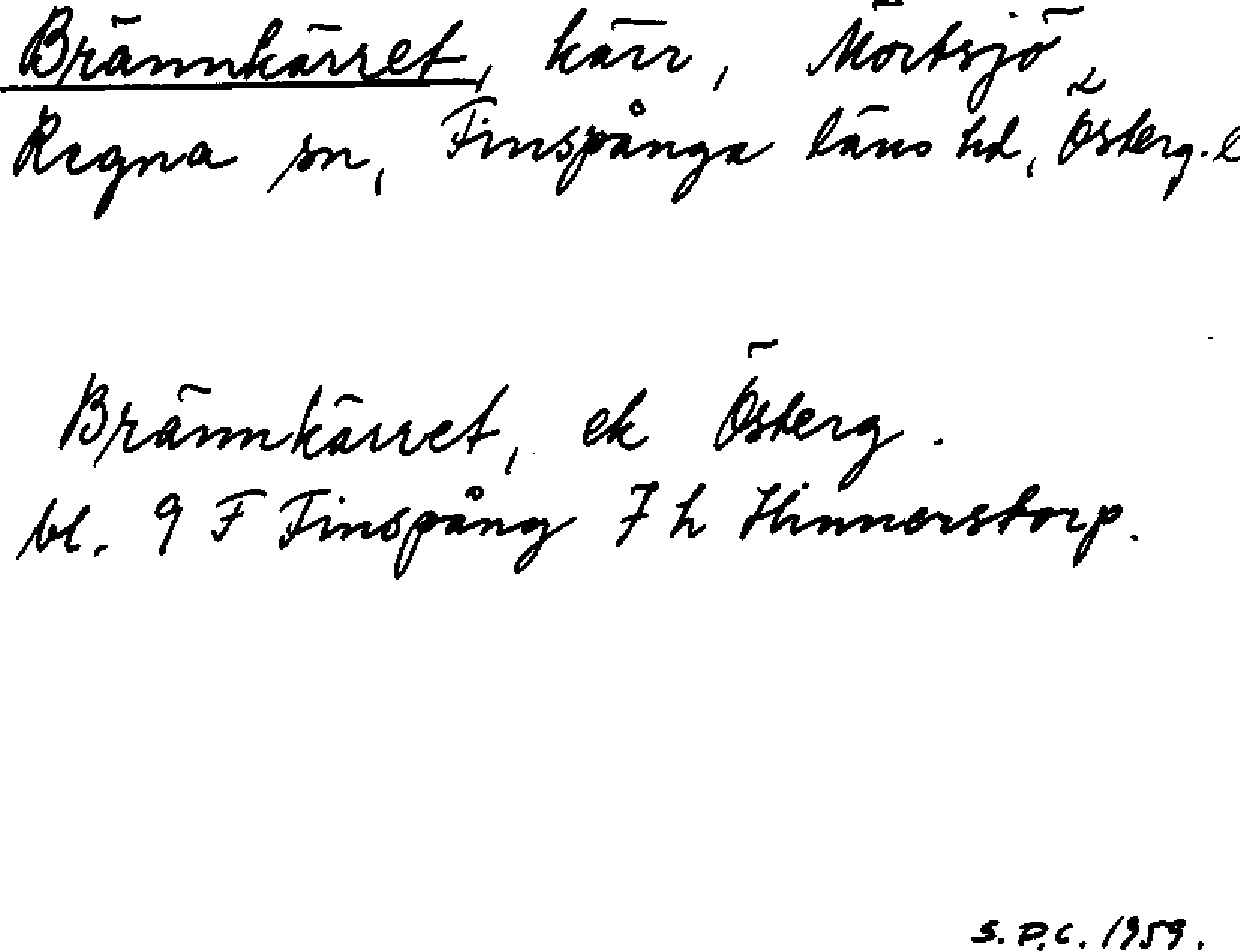 Brännkärret, kärr, Mörtsjö,
Regna sn, Finspånga läns hd, Österg. l
Brännkärret, ek Österg.
bl. 9 F Finspång 7 h Hinnerstorp.
S.P.C. 1959.